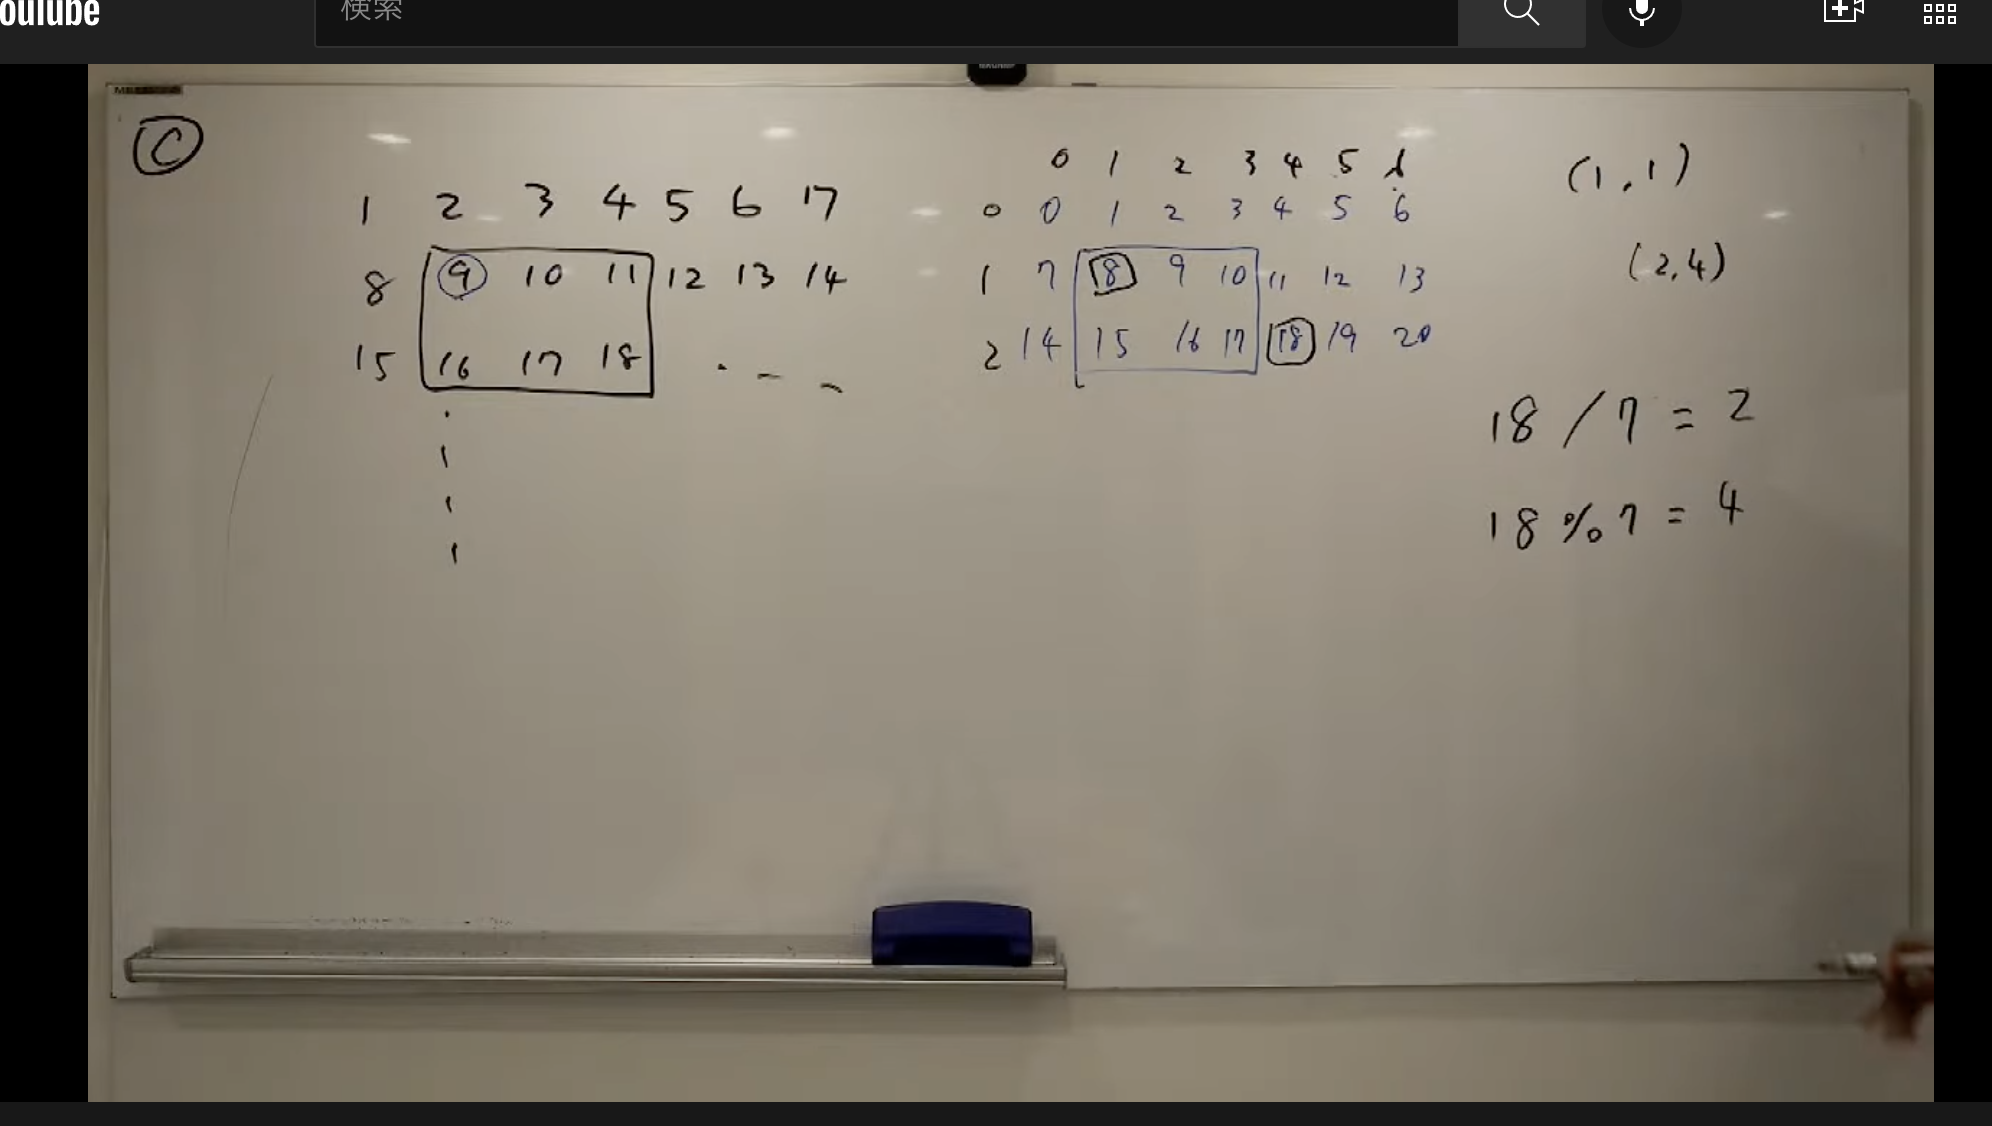 ouTube
検索
C
1 2 3 4 5 6 7
8 9 10 11 12 13 14
15 16 17 18
0 1 2 3 4 5 6
0 0 1 2 3 4 5 6
1 7 8 9 10 11 12 13
2 14 15 16 17 18 19 20
(1, 1)
(2,4)
18 / 7 = 2
18 % 7 = 4